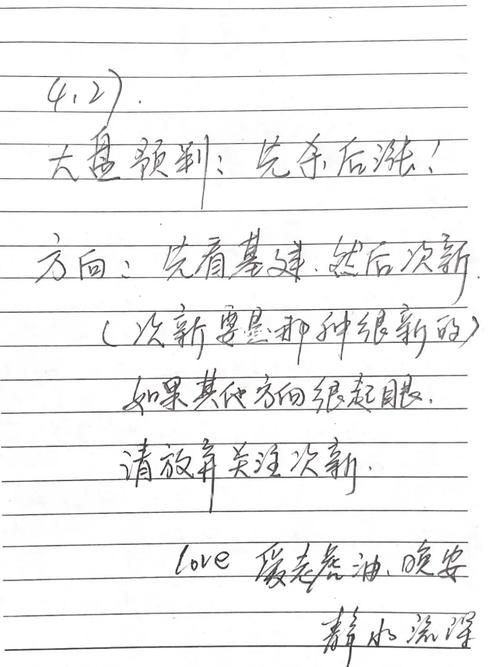 4.27.
大盘预判：先杀后涨！
方向：先看基建.然后次新.
（次新要是那种很新的）
如果其他方向很起眼.
请放弃关注次新.
love 爱老虎油.晚安
静水流深